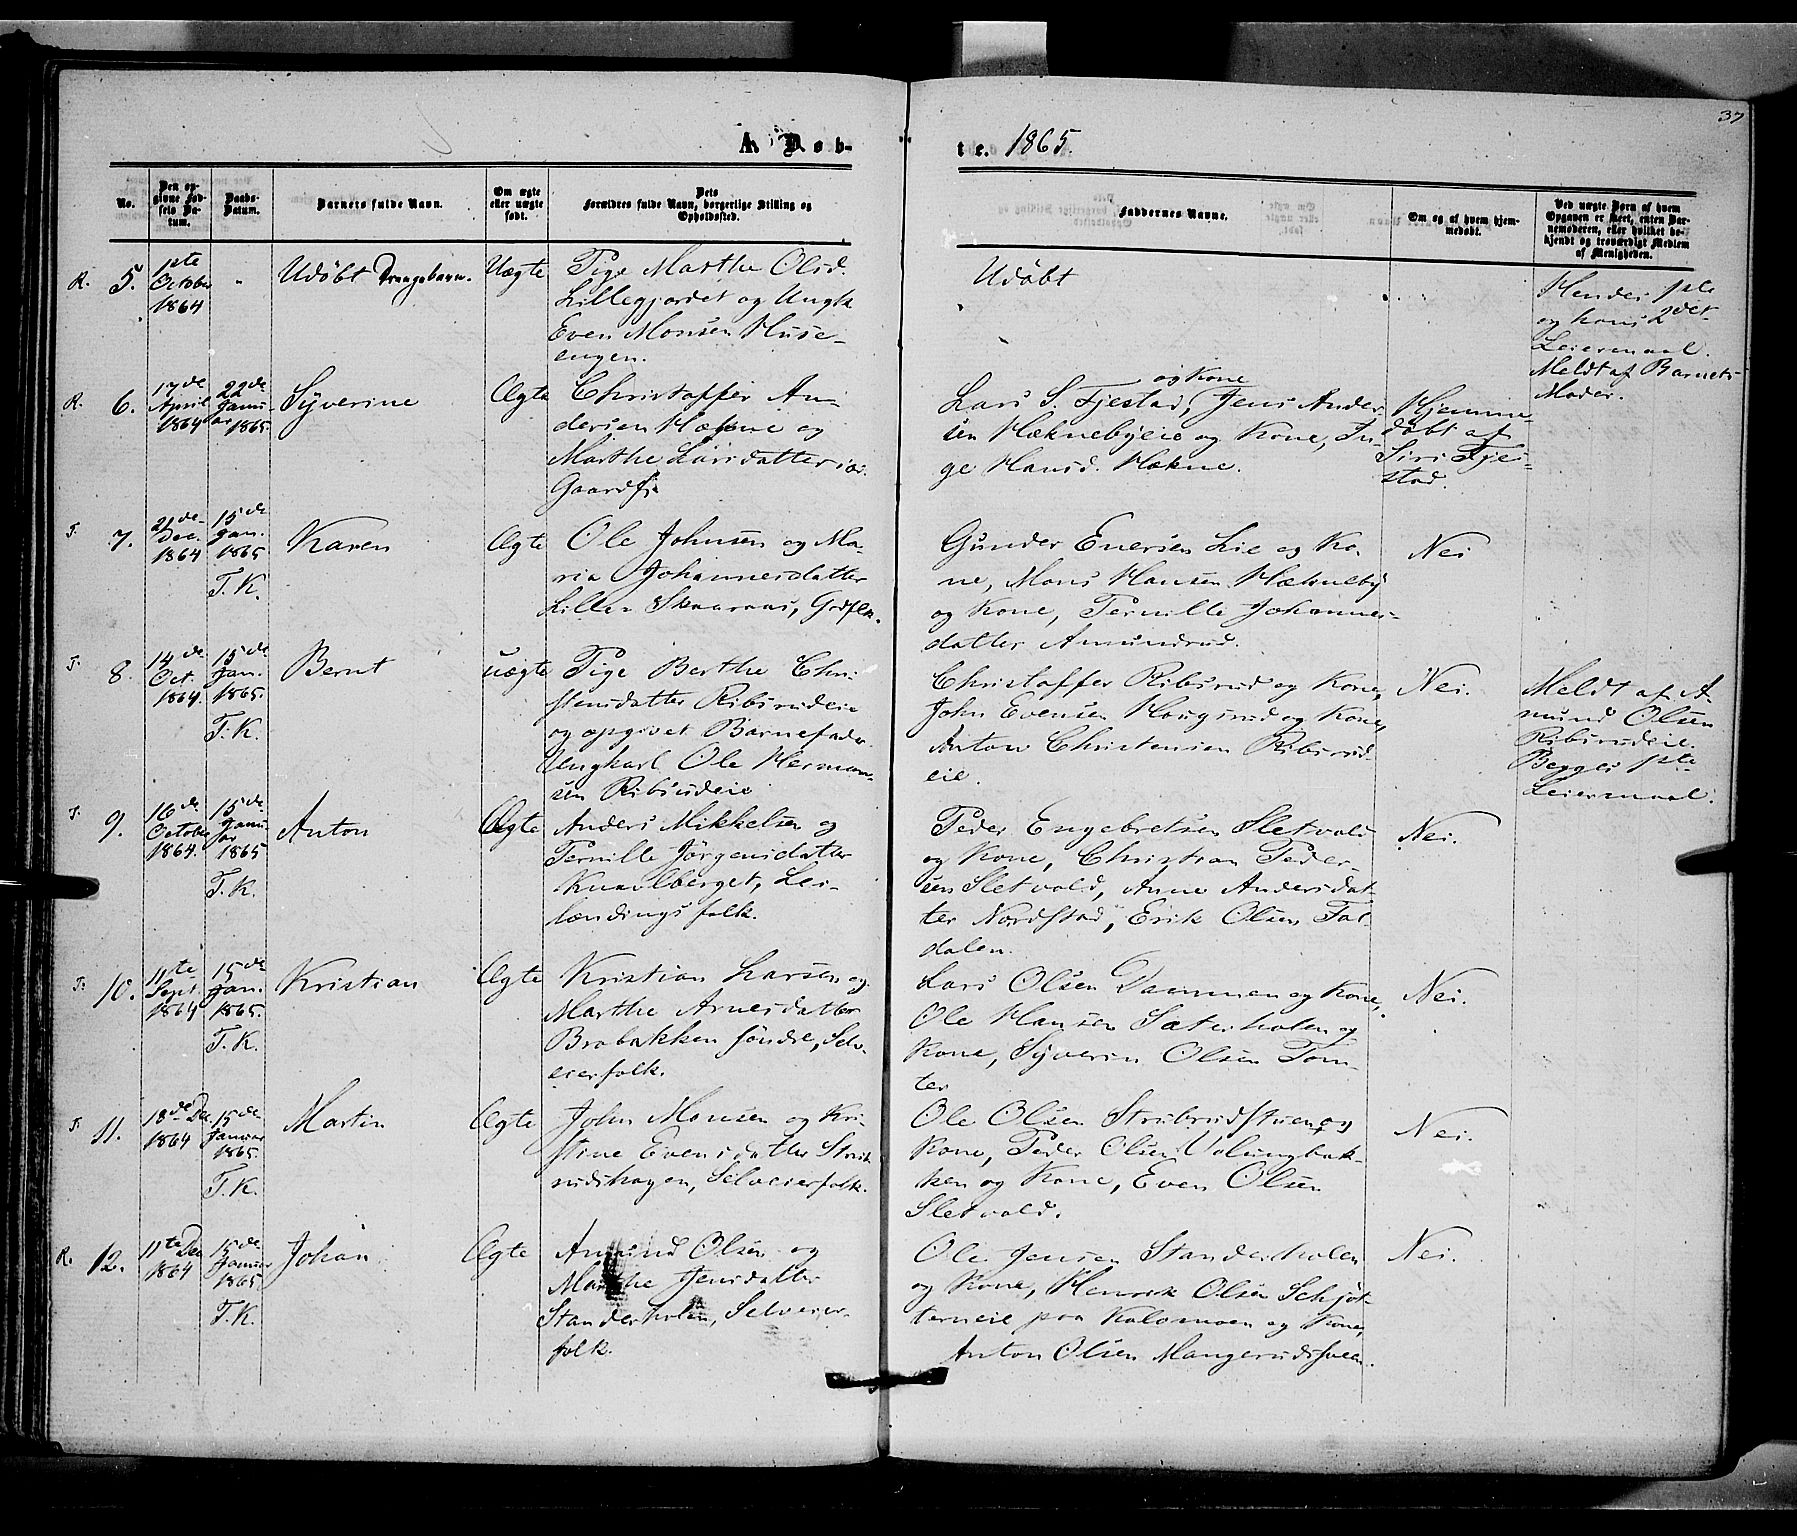 37
A. Døb-
te. 1865.
No.
Den op-
givne Fød-
sels Da-
tum.
Daabs-
Datum.
Barnets fulde Navn.
Om ægte
eller uægte
født.
Dets
Forældres fulde Navn, borgerlige Stilling og
Opholdssted.
Faddernes Navne.
Om og af hvem hjem-
medøbt.
Ved uægte Børn af hvem
Opgaven er skeet, enten Bar-
nemoderen, eller hvilket be-
kjendt og troværdigt Medlem
af Menigheden.
R. 5.
1ste
October
1864
"
Udöbt Drengebarn.
Uægte
Pige Marthe Olsd.
Lillegjordet og Ungk.
Even Monsen Huse-
engen.
Udöbt
Hendes 1ste
og hans 2det
Leiermaal.
Meldt af Barnets
Moder.
R. 6.
17de
April
1864
22de
Janu-
ar 1865.
Syverine
Ægte
Christoffer An-
dersen Hækne og
Marthe Larsdatter
Gaardf.
og Kone
Lars S. Fjestad, Jens Ander-
sen Hæknebyeie og Kone, In-
ge Hansd. Hækne.
Hjemme
döbt af
Siri Fje-
stad.
T. 7.
21de
Dec.
1864
15de
Jan.
1865
T.K.
Karen
Ægte
Ole Johnsen og Ma-
ria Johannesdatter
Lille Skaaraas, Grdflk.
Gunder Enersen Lie og Ko-
ne, Mons Hansen Hækneby
og Kone, Pernille Johannes-
datter Amundrud.
Nei
T. 8.
14de
Oct.
1864.
15de
Jan.
1865.
T.K.
Bernt
uægte
Pige Berthe Chri-
stensdatter Ribsrudeie
og opgivet Barnefader
Ungkarl Ole Herman-
sen Ribsrudeie
Christoffer Ribsrud og Kone,
John Evensen Haugsrud og Kone,
Anton Christensen Ribsrud-
eie.
Nei.
Meldt af A-
mund Olsen
Ribsrudeie.
Begges 1ste
Leiermaal.
T. 9.
16de
October
1864.
15de
Janu-
ar
1865
T.K.
Anton
Ægte
Anders Mikkelsen og
Pernille Jörgensdatter
Knavlberget, Lei-
lændingsfolk.
Peder Engebretsen Sletvold
og Kone, Christian Peder-
sen Sletvold, Anne Andersdat-
ter Nordstad, Erik Olsen Tat
dalen.
Nei.
T. 10.
11te
Sept.
1864
15de
Jan.
1865.
T.K.
Kristian
Ægte
Kristian Larsen og
Marthe Arnesdatter
Brobakken söndre, Selv-
eierfolk.
Lars Olsen Dammen og Kone,
Ole Hansen Sæterholen og
Kone, Syverin Olsen Tom-
ter
Nei.
T. 11.
18de Dec
1864
15de
Januar
1865.
T.K.
Martin
Ægte
John Monsen og Kri-
stine Evensdatter Strub
rudshagen, Selveierfolk.
Ole Olsen Strubrudstuen og
Kone, Peder Olsen Volungbak-
ken og Kone, Even Olsen
Sletvold.
Nei.
R. 12.
11te Dec
1864
15de
Januar
1865.
T.K.
Johan
Ægte
Amund Olsen og
Marthe Jensdatter
Standerholen, Selveier-
folk.
Ole Jensen Standerholen
og Kone, Henrik Olsen Schjöt-
terneie paa Kolomoen og Kone,
Anton Olsen Mangerudsveen.
Nei.